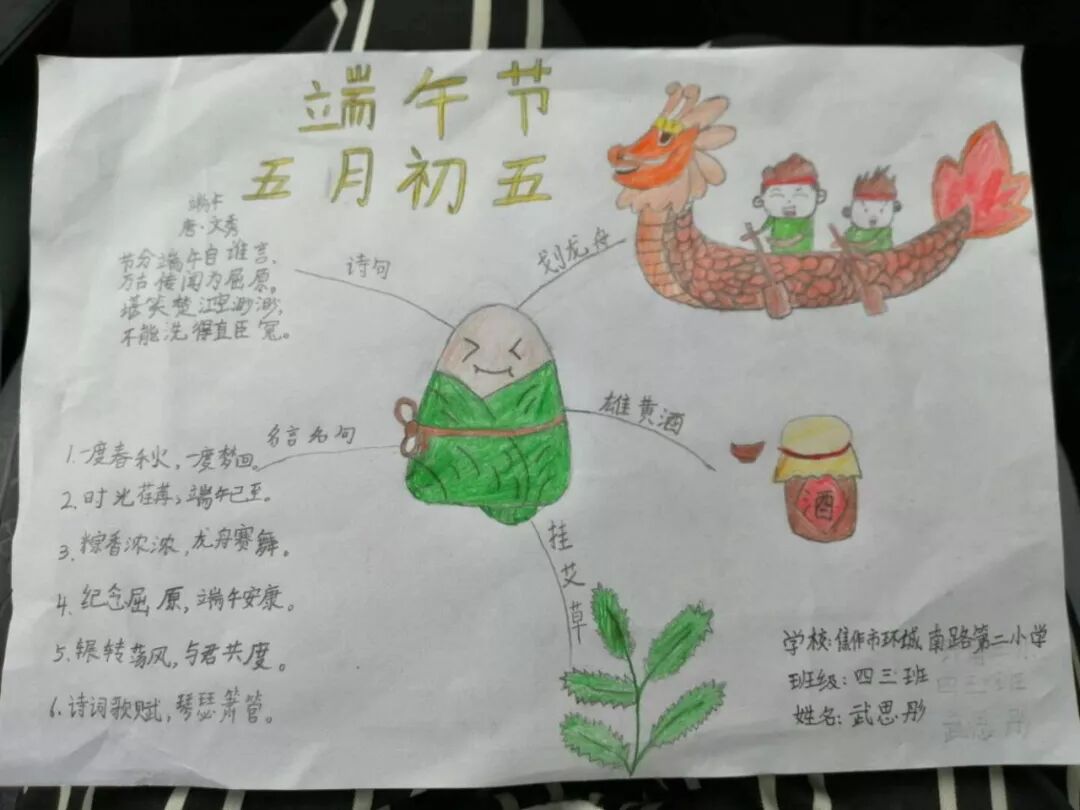 端午节
五月初五
端午
唐·文秀
节分端午自谁言,
万古传闻为屈原。
堪笑楚江空渺渺,
不能洗得直臣冤。
诗句
划龙舟
雄黄酒
酒
名言名句
1.一度春秋,一度梦回。
2.时光荏苒,端午已至。
3.粽香浓浓,龙舟赛舞。
4.纪念屈原,端午安康。
5.辗转荡风,与君共度。
6.诗词歌赋,琴瑟箫管。
挂艾草
学校:焦作市环城南路第二小学
班级:四三班
姓名:武思彤
四三班
武思彤